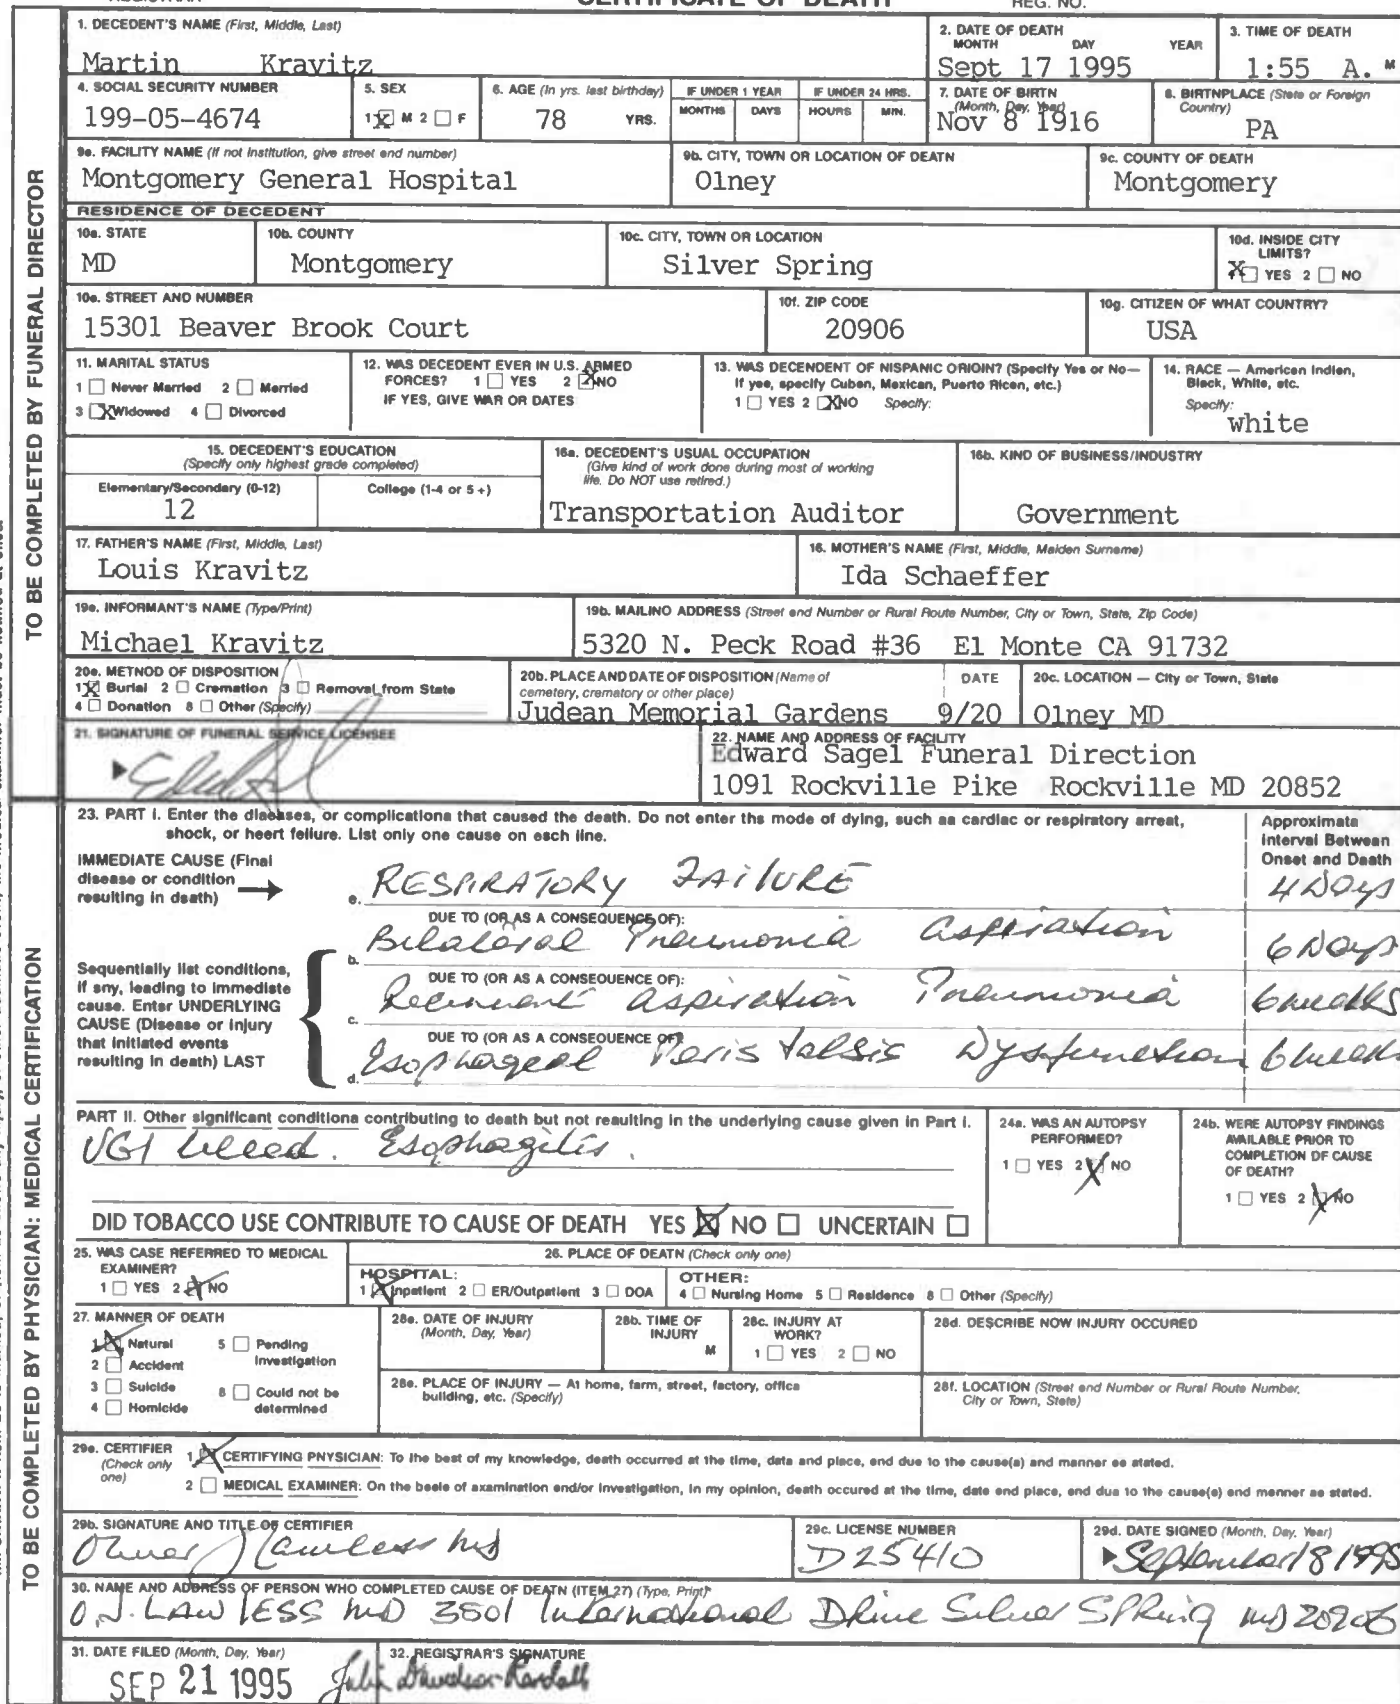 CERTIFICATE OF DEATH
REG. NO.
1. DECEDENT'S NAME (First, Middle, Last)
Martin Kravitz
2. DATE OF DEATH
MONTH DAY YEAR
Sept 17 1995
3. TIME OF DEATH
1:55 A. M
4. SOCIAL SECURITY NUMBER
199-05-4674
5. SEX
1 X M 2 ☐ F
6. AGE (In yrs. last birthday)
78 YRS.
IF UNDER 1 YEAR
MONTHS DAYS
IF UNDER 24 HRS.
HOURS MIN.
7. DATE OF BIRTH
(Month, Day, Year)
Nov 8 1916
8. BIRTHPLACE (State or Foreign Country)
PA
9a. FACILITY NAME (If not institution, give street and number)
Montgomery General Hospital
9b. CITY, TOWN OR LOCATION OF DEATH
Olney
9c. COUNTY OF DEATH
Montgomery
RESIDENCE OF DECEDENT
10a. STATE
MD
10b. COUNTY
Montgomery
10c. CITY, TOWN OR LOCATION
Silver Spring
10d. INSIDE CITY LIMITS?
X YES 2 ☐ NO
10e. STREET AND NUMBER
15301 Beaver Brook Court
10f. ZIP CODE
20906
10g. CITIZEN OF WHAT COUNTRY?
USA
11. MARITAL STATUS
1 ☐ Never Married 2 ☐ Married
3 X Widowed 4 ☐ Divorced
12. WAS DECEDENT EVER IN U.S. ARMED
FORCES? 1 ☐ YES 2 X NO
IF YES, GIVE WAR OR DATES
13. WAS DECENDENT OF HISPANIC ORIGIN? (Specify Yes or No—
If yes, specify Cuban, Mexican, Puerto Rican, etc.)
1 ☐ YES 2 X NO Specify:
14. RACE — American Indian,
Black, White, etc.
Specify:
white
15. DECEDENT'S EDUCATION
(Specify only highest grade completed)
Elementary/Secondary (0-12)
12
College (1-4 or 5+)
16a. DECEDENT'S USUAL OCCUPATION
(Give kind of work done during most of working
life. Do NOT use retired.)
Transportation Auditor
16b. KIND OF BUSINESS/INDUSTRY
Government
17. FATHER'S NAME (First, Middle, Last)
Louis Kravitz
18. MOTHER'S NAME (First, Middle, Maiden Surname)
Ida Schaeffer
19a. INFORMANT'S NAME (Type/Print)
Michael Kravitz
19b. MAILING ADDRESS (Street and Number or Rural Route Number, City or Town, State, Zip Code)
5320 N. Peck Road #36 El Monte CA 91732
20a. METHOD OF DISPOSITION
1 X Burial 2 ☐ Cremation 3 ☐ Removal from State
4 ☐ Donation 8 ☐ Other (Specify)
20b. PLACE AND DATE OF DISPOSITION (Name of
cemetery, crematory or other place)
Judean Memorial Gardens
DATE
9/20
20c. LOCATION — City or Town, State
Olney MD
21. SIGNATURE OF FUNERAL SERVICE LICENSEE
22. NAME AND ADDRESS OF FACILITY
Edward Sagel Funeral Direction
1091 Rockville Pike Rockville MD 20852
TO BE COMPLETED BY FUNERAL DIRECTOR
23. PART I. Enter the diseases, or complications that caused the death. Do not enter the mode of dying, such as cardiac or respiratory arrest,
shock, or heart failure. List only one cause on each line.
Approximate
Interval Between
Onset and Death
IMMEDIATE CAUSE (Final
disease or condition
resulting in death)
a. RESPIRATORY FAILURE 4 Days
DUE TO (OR AS A CONSEQUENCE OF):
b. Bilateral Pneumonia aspiration 6 Days
Sequentially list conditions,
if any, leading to immediate
cause. Enter UNDERLYING
CAUSE (Disease or injury
that initiated events
resulting in death) LAST
DUE TO (OR AS A CONSEQUENCE OF):
c. Recurrent aspiration Pneumonia 6 weeks
DUE TO (OR AS A CONSEQUENCE OF):
d. Esophageal Peristalsis Dysfunction 6 weeks
PART II. Other significant conditions contributing to death but not resulting in the underlying cause given in Part I.
UGI bleed. Esophagitis.
24a. WAS AN AUTOPSY
PERFORMED?
1 ☐ YES 2 X NO
24b. WERE AUTOPSY FINDINGS
AVAILABLE PRIOR TO
COMPLETION OF CAUSE
OF DEATH?
1 ☐ YES 2 X NO
DID TOBACCO USE CONTRIBUTE TO CAUSE OF DEATH YES X NO ☐ UNCERTAIN ☐
25. WAS CASE REFERRED TO MEDICAL
EXAMINER?
1 ☐ YES 2 X NO
26. PLACE OF DEATH (Check only one)
HOSPITAL:
1 X Inpatient 2 ☐ ER/Outpatient 3 ☐ DOA
OTHER:
4 ☐ Nursing Home 5 ☐ Residence 8 ☐ Other (Specify)
27. MANNER OF DEATH
1 X Natural 5 ☐ Pending
2 ☐ Accident Investigation
3 ☐ Suicide 8 ☐ Could not be
4 ☐ Homicide determined
28a. DATE OF INJURY
(Month, Day, Year)
28b. TIME OF
INJURY
M
28c. INJURY AT
WORK?
1 ☐ YES 2 ☐ NO
28d. DESCRIBE HOW INJURY OCCURED
28e. PLACE OF INJURY — At home, farm, street, factory, office
building, etc. (Specify)
28f. LOCATION (Street and Number or Rural Route Number,
City or Town, State)
29a. CERTIFIER
(Check only
one)
1 X CERTIFYING PHYSICIAN: To the best of my knowledge, death occurred at the time, date and place, and due to the cause(s) and manner as stated.
2 ☐ MEDICAL EXAMINER: On the basis of examination and/or investigation, in my opinion, death occured at the time, date and place, and due to the cause(s) and manner as stated.
29b. SIGNATURE AND TITLE OF CERTIFIER
Oliver J Lawless MD
29c. LICENSE NUMBER
D25410
29d. DATE SIGNED (Month, Day, Year)
September 18 1995
30. NAME AND ADDRESS OF PERSON WHO COMPLETED CAUSE OF DEATH (ITEM 27) (Type, Print)
O.J. LAWLESS MD 3501 International Drive Silver Spring MD 20906
31. DATE FILED (Month, Day, Year)
SEP 21 1995
32. REGISTRAR'S SIGNATURE
TO BE COMPLETED BY PHYSICIAN: MEDICAL CERTIFICATION